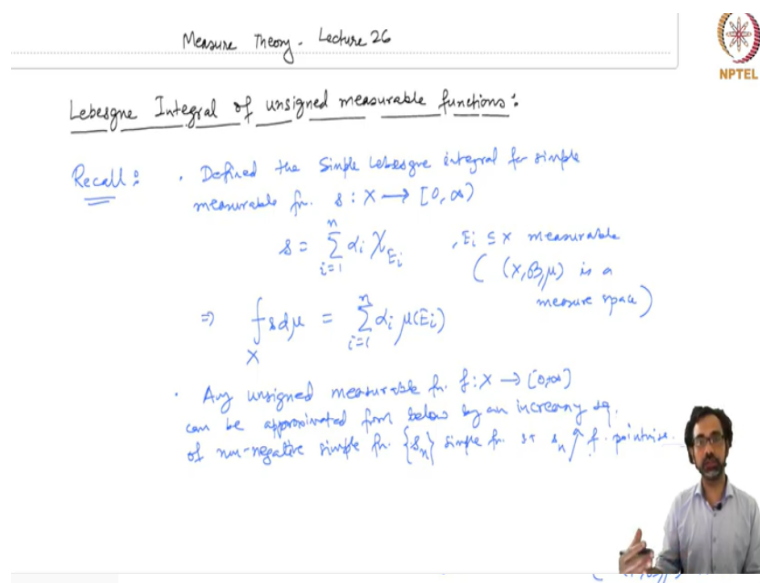 Measure Theory - Lecture 26
NPTEL
Lebesgue Integral of unsigned measurable functions:
Recall: • Defined the simple Lebesgue integral for simple
measurable fn. s : X → [0, ∞)
s = ∑_{i=1}^{n} αᵢ χ_{Eᵢ} , Eᵢ ⊆ X measurable
( (X, B, μ) is a
measure space )
⇒ ∫_X s dμ = ∑_{i=1}^{n} αᵢ μ(Eᵢ)
• Any unsigned measurable fn. f : X → [0, ∞]
can be approximated from below by an increasing sq.
of non-negative simple fn. {sₙ} simple fn. st sₙ ↑ f pointwise.